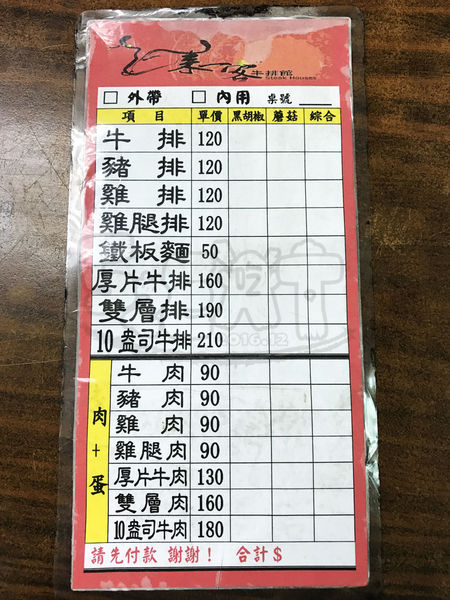 客
牛排館
Steak Houses
□ 外帶 □ 內用 桌號
項目 單價 黑胡椒 蘑菇 綜合
牛排 120
豬排 120
雞排 120
雞腿排 120
鐵板麵 50
厚片牛排 160
雙層排 190
10盎司牛排 210
肉+蛋
牛肉 90
豬肉 90
雞肉 90
雞腿肉 90
厚片牛肉 130
雙層肉 160
10盎司牛肉 180
請先付款 謝謝! 合計$
2016.12